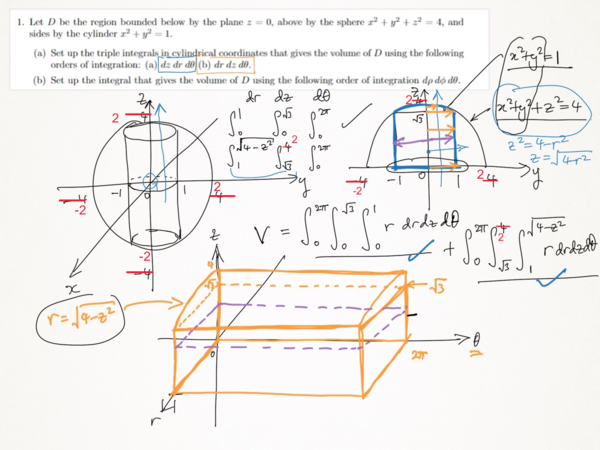 1. Let D be the region bounded below by the plane z = 0, above by the sphere x² + y² + z² = 4, and
sides by the cylinder x² + y² = 1.
(a) Set up the triple integrals in cylindrical coordinates that gives the volume of D using the following
orders of integration: (a) dz dr dθ (b) dr dz dθ.
(b) Set up the integral that gives the volume of D using the following order of integration dρ dϕ dθ.
dr dz dθ
∫₀¹ ∫₀^√3 ∫₀^2π
∫₁^√4-z² ∫_√3^4 2 ∫₀^2π
z
2 4
-4 -2
-1 0 1
2 4
y
-2
-4
x
z
2 4
√3
-4 -1 0 1 2 4
y
x²+y²=1
x²+y²+z²=4
z²=4-r²
z=√4-r²
V = ∫₀^2π ∫₀^√3 ∫₀¹ r dr dz dθ
+ ∫₀^2π ∫_√3^4 2 ∫₁^√4-z² r dr dz dθ
r=√4-z²
z
√3
√3
0
2π
θ
r
1